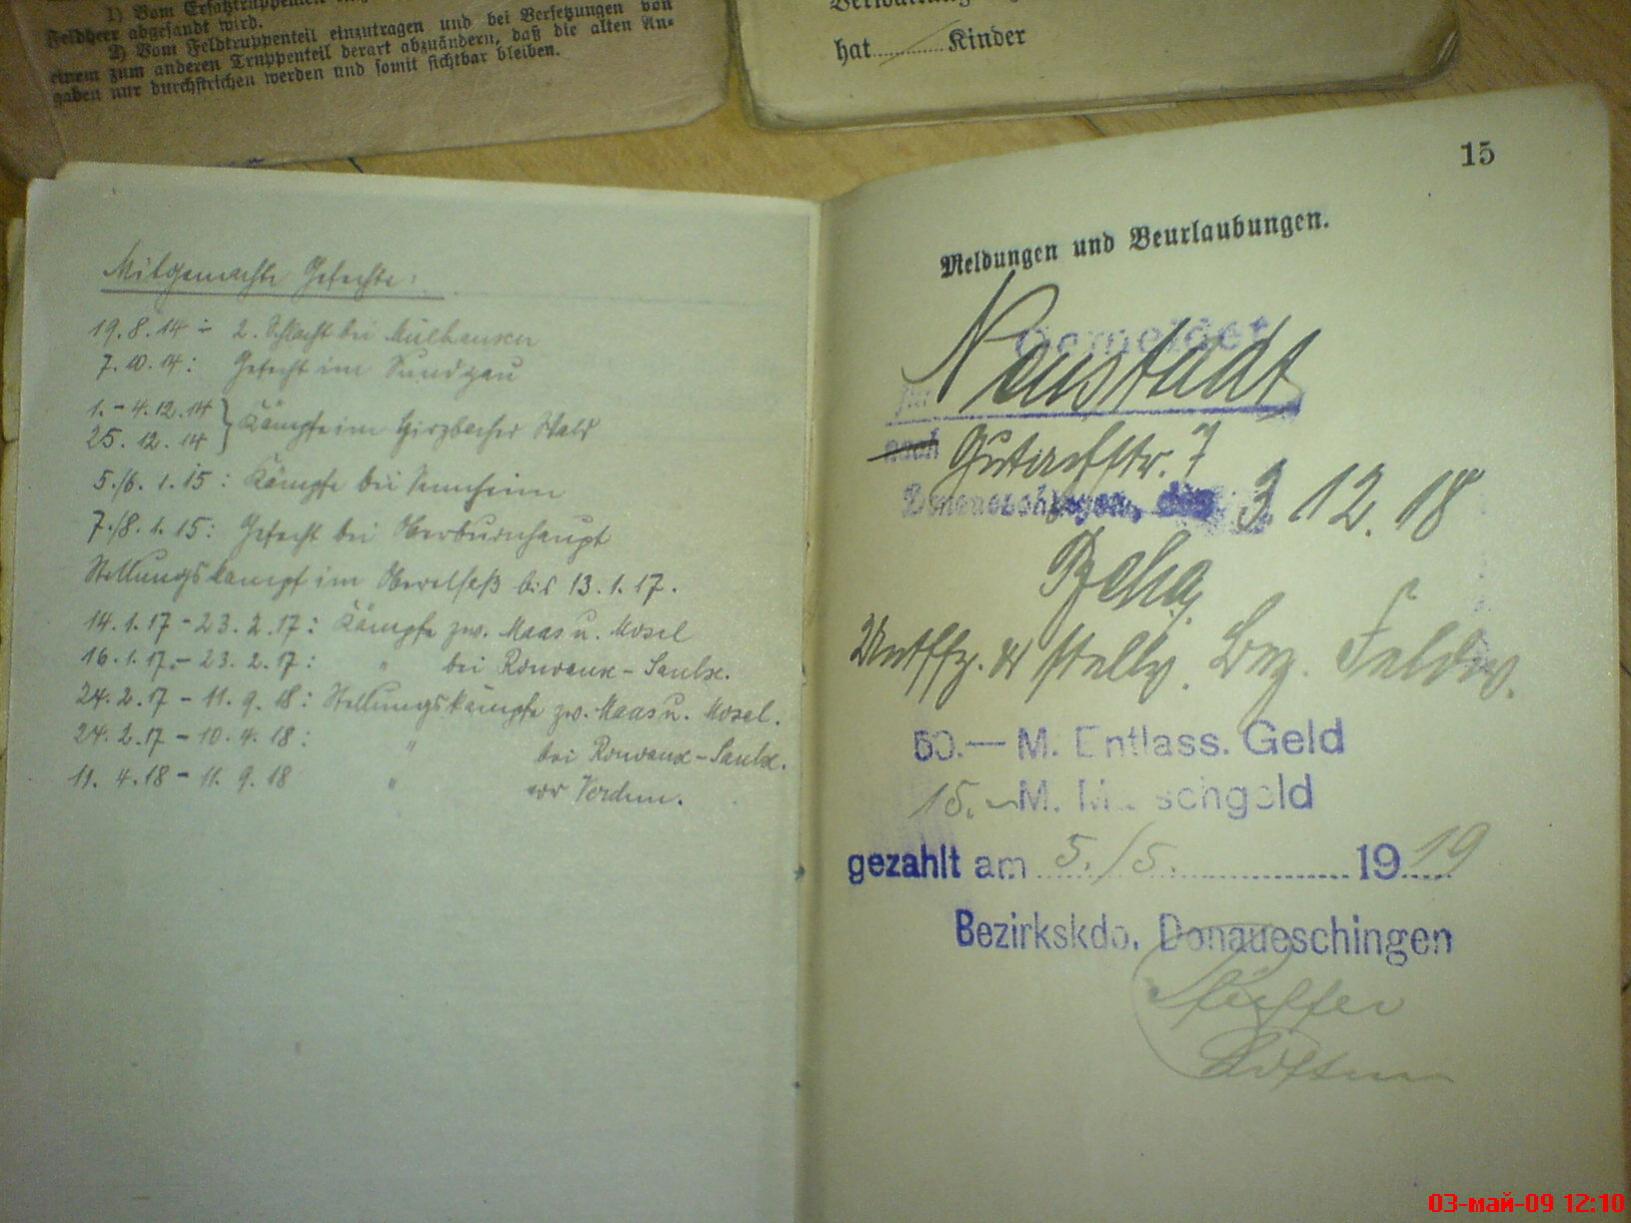 1) Vom Ersatztruppenteil
Feldheer abgesandt wird.
2) Vom Feldtruppenteil einzutragen und bei Versetzungen von
einem zum anderen Truppenteil derart abzuändern, daß die alten An-
gaben nur durchstrichen werden und somit sichtbar bleiben.
hat Kinder
Mitgemachte Gefechte:
19.8.14 – 2. Schlacht bei Mülhausen
7.10.14: Gefecht im Sundgau
1.-4.12.14
25.12.14 } Kämpfe im Hirzbacher Wald
5./6.1.15: Kämpfe bei Sennheim
7./8.1.15: Gefecht bei Oberburnhaupt
Stellungskampf im Oberelsaß bis 13.1.17.
14.1.17 - 23.2.17: Kämpfe zw. Maas u. Mosel
16.1.17.- 23.2.17: " bei Rouvaux-Saulx.
24.2.17 - 11.9.18: Stellungskämpfe zw. Maas u. Mosel.
24.2.17 - 10.4.18: " bei Rouvaux-Saulx.
11.4.18 - 11.9.18 " vor Verdun.
15
Meldungen und Beurlaubungen.
Gemeldet
Neustadt
nach Gutachstr. 7
Donaueschingen, den 3.12.18
Untffz. u stellv. Bez. Feldw.
50.— M. Entlass. Geld
15.— M. Marschgeld
gezahlt am 5./5. 1919
Bezirkskdo. Donaueschingen
03-май-09 12:10